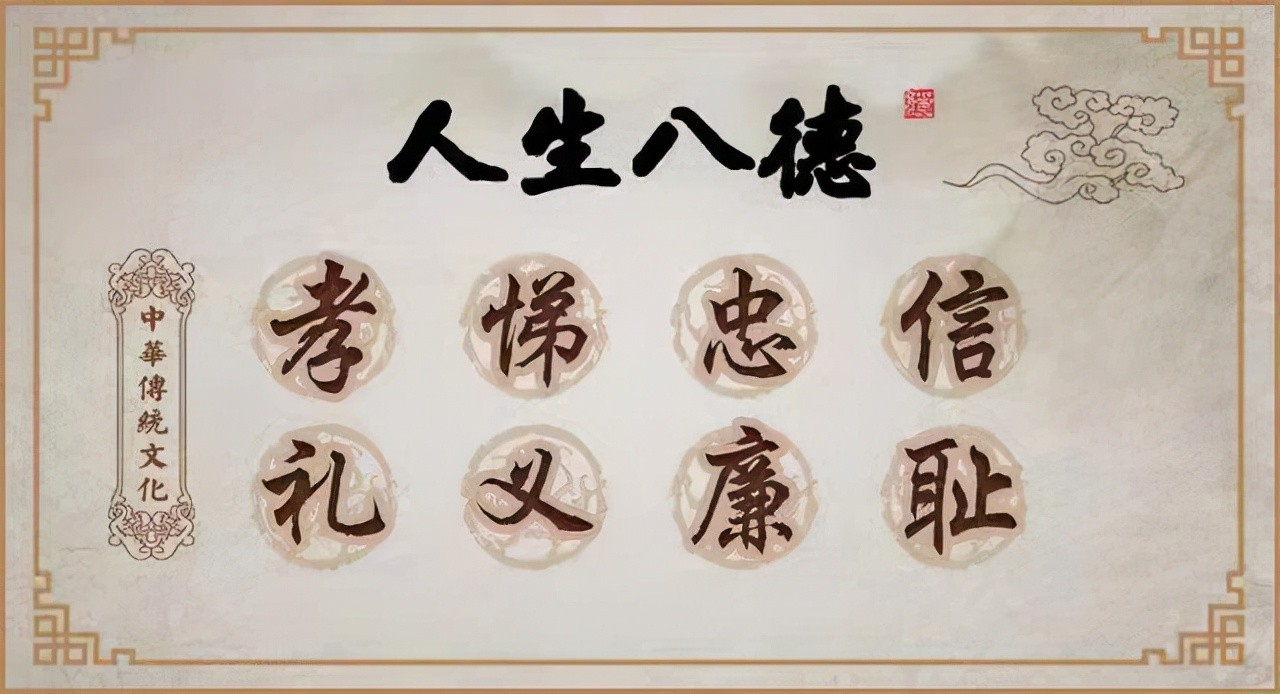 人生八德
中華傳統文化
孝 悌 忠 信
礼 义 廉 耻